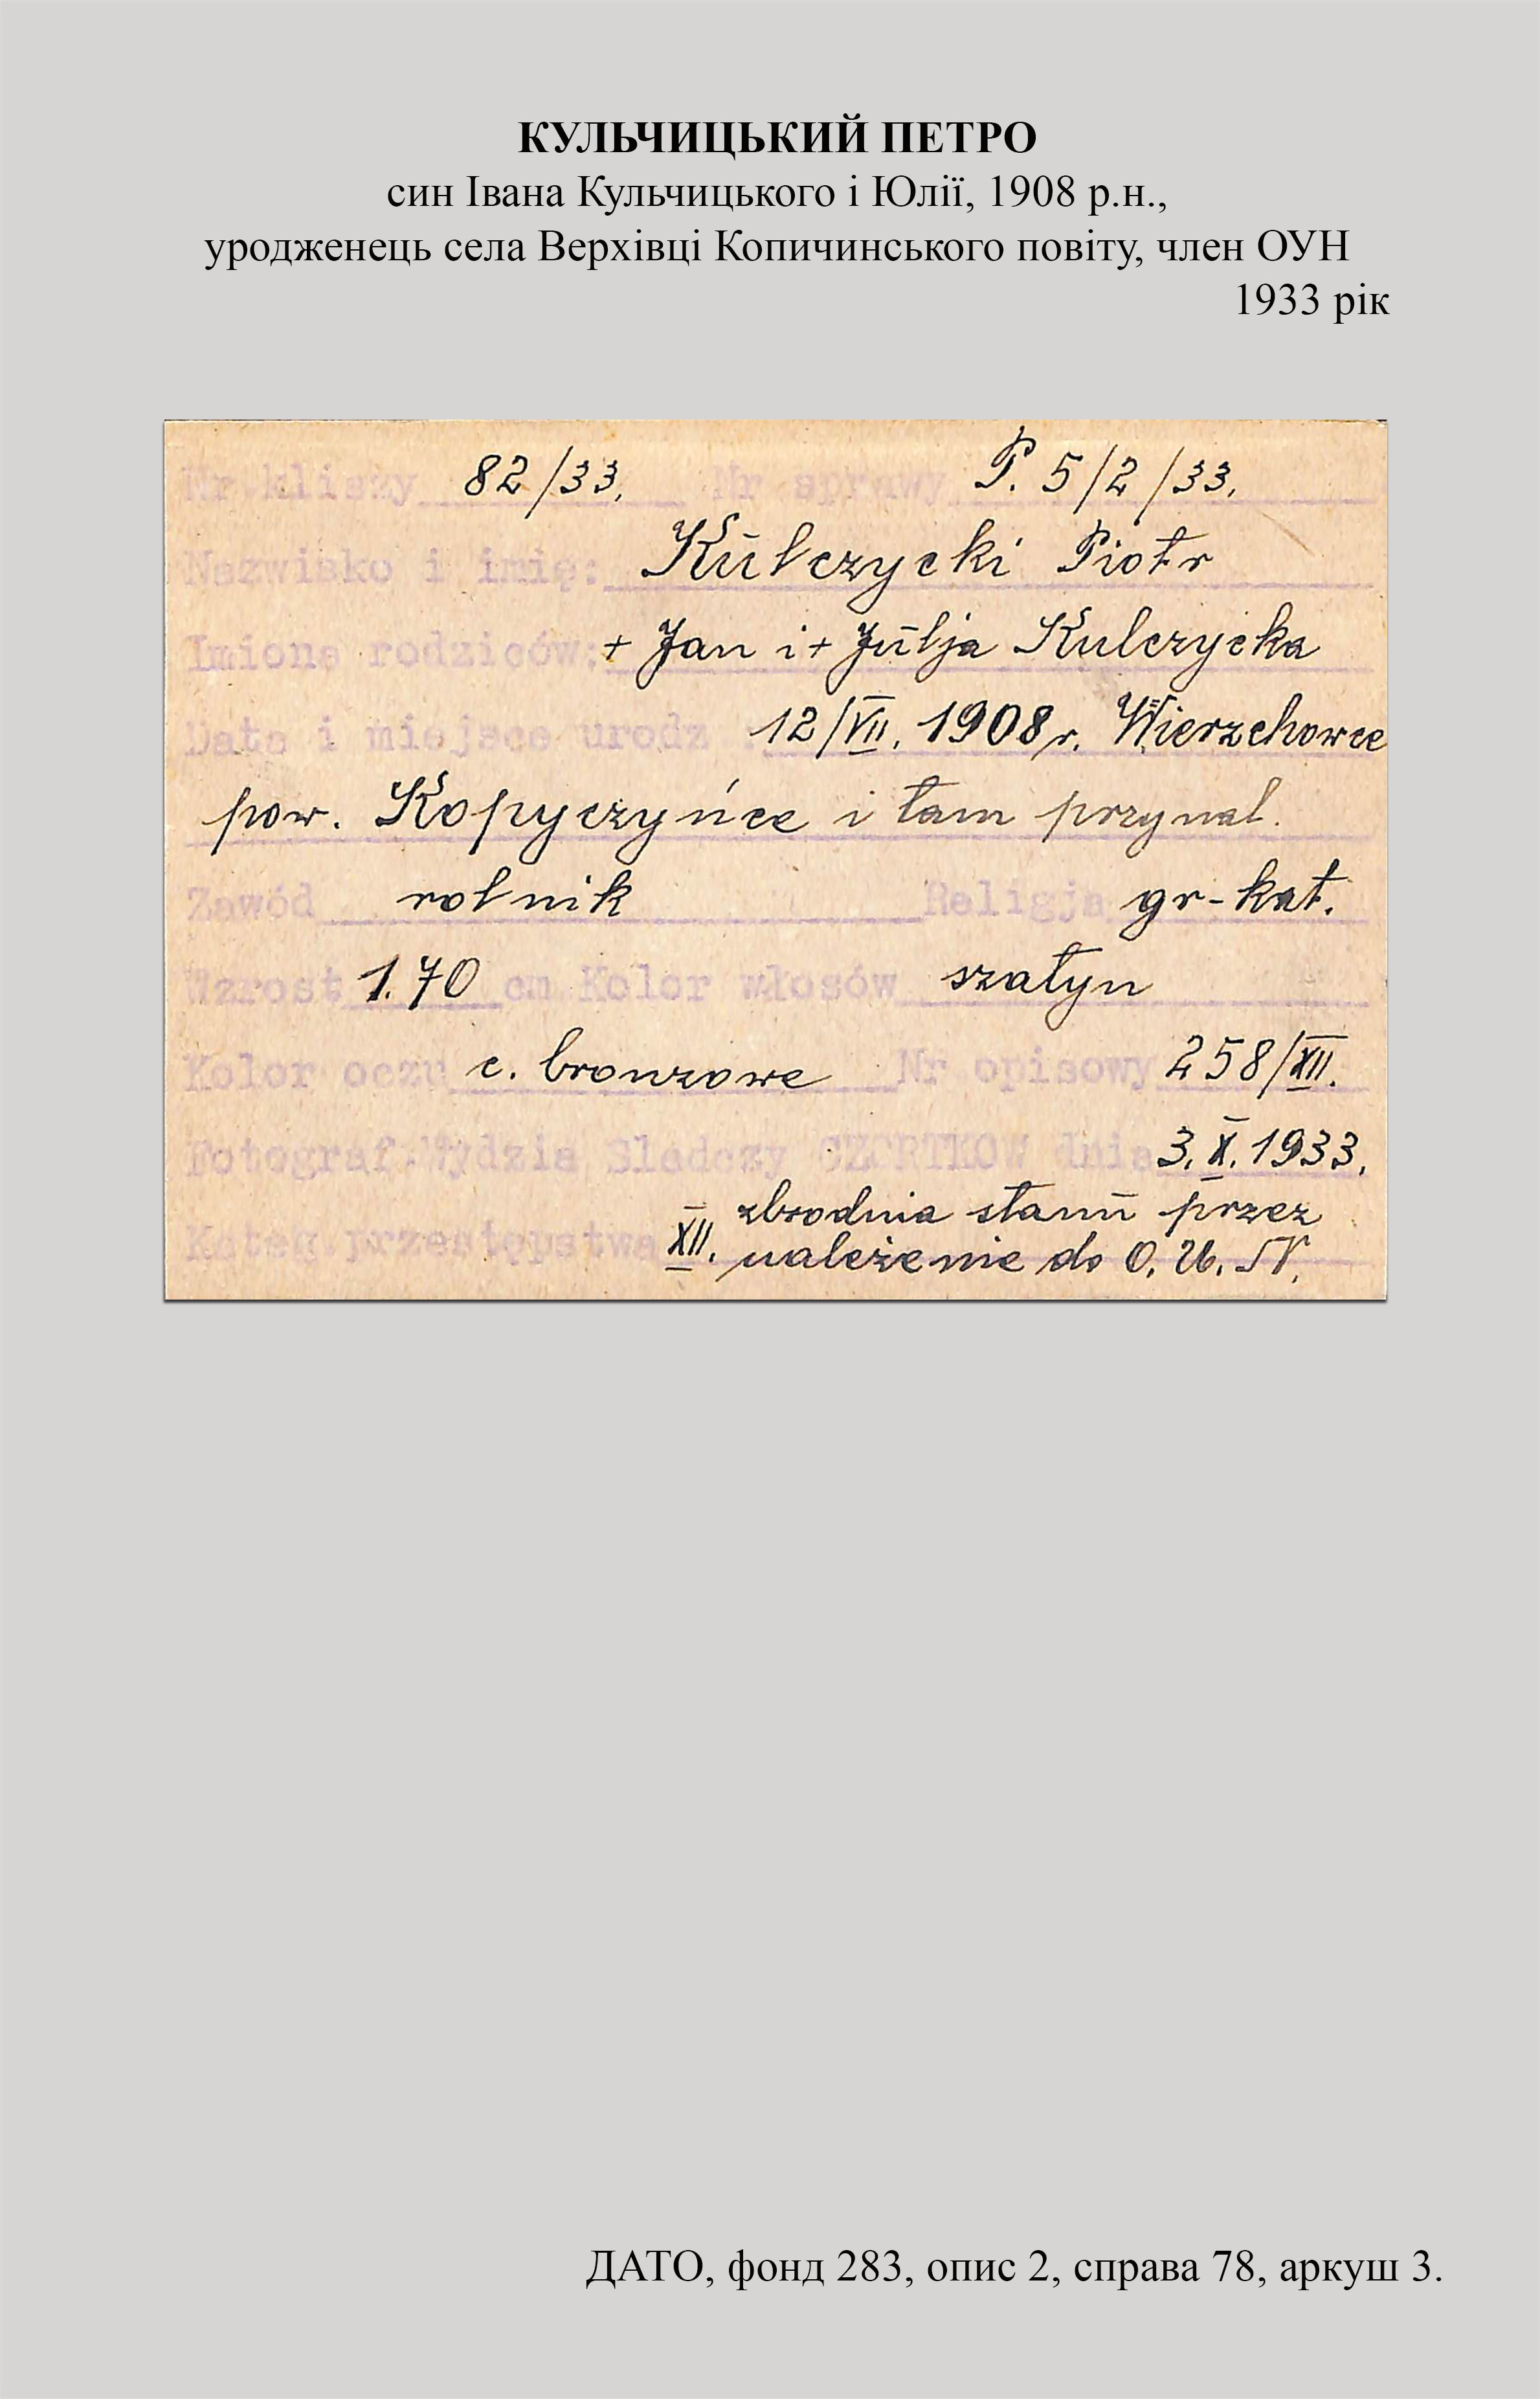 КУЛЬЧИЦЬКИЙ ПЕТРО
син Івана Кульчицького і Юлії, 1908 р.н.,
уродженець села Верхівці Копичинського повіту, член ОУН
1933 рік
Nr kliszy 82/33. Nr sprawy P. 5/2/33.
Nazwisko i imię: Kulczycki Piotr
Imiona rodziców: + Jan i + Julja Kulczycka
Data i miejsce urodz : 12/VII. 1908 r. Wierzchowce
pow. Kopyczyńce i tam przynal.
Zawód rolnik Religja gr-kat.
Wzrost 1.70 cm Kolor włosów szatyn
Kolor oczu c. bronzowe Nr opisowy 258/XII.
Fotograf. Wydzia Sledczy CZORTKOW dnia 3. X. 1933.
Kateg. przestępstwa XII. zbrodnia stanu przez
należenie do O. U. N.
ДАТО, фонд 283, опис 2, справа 78, аркуш 3.